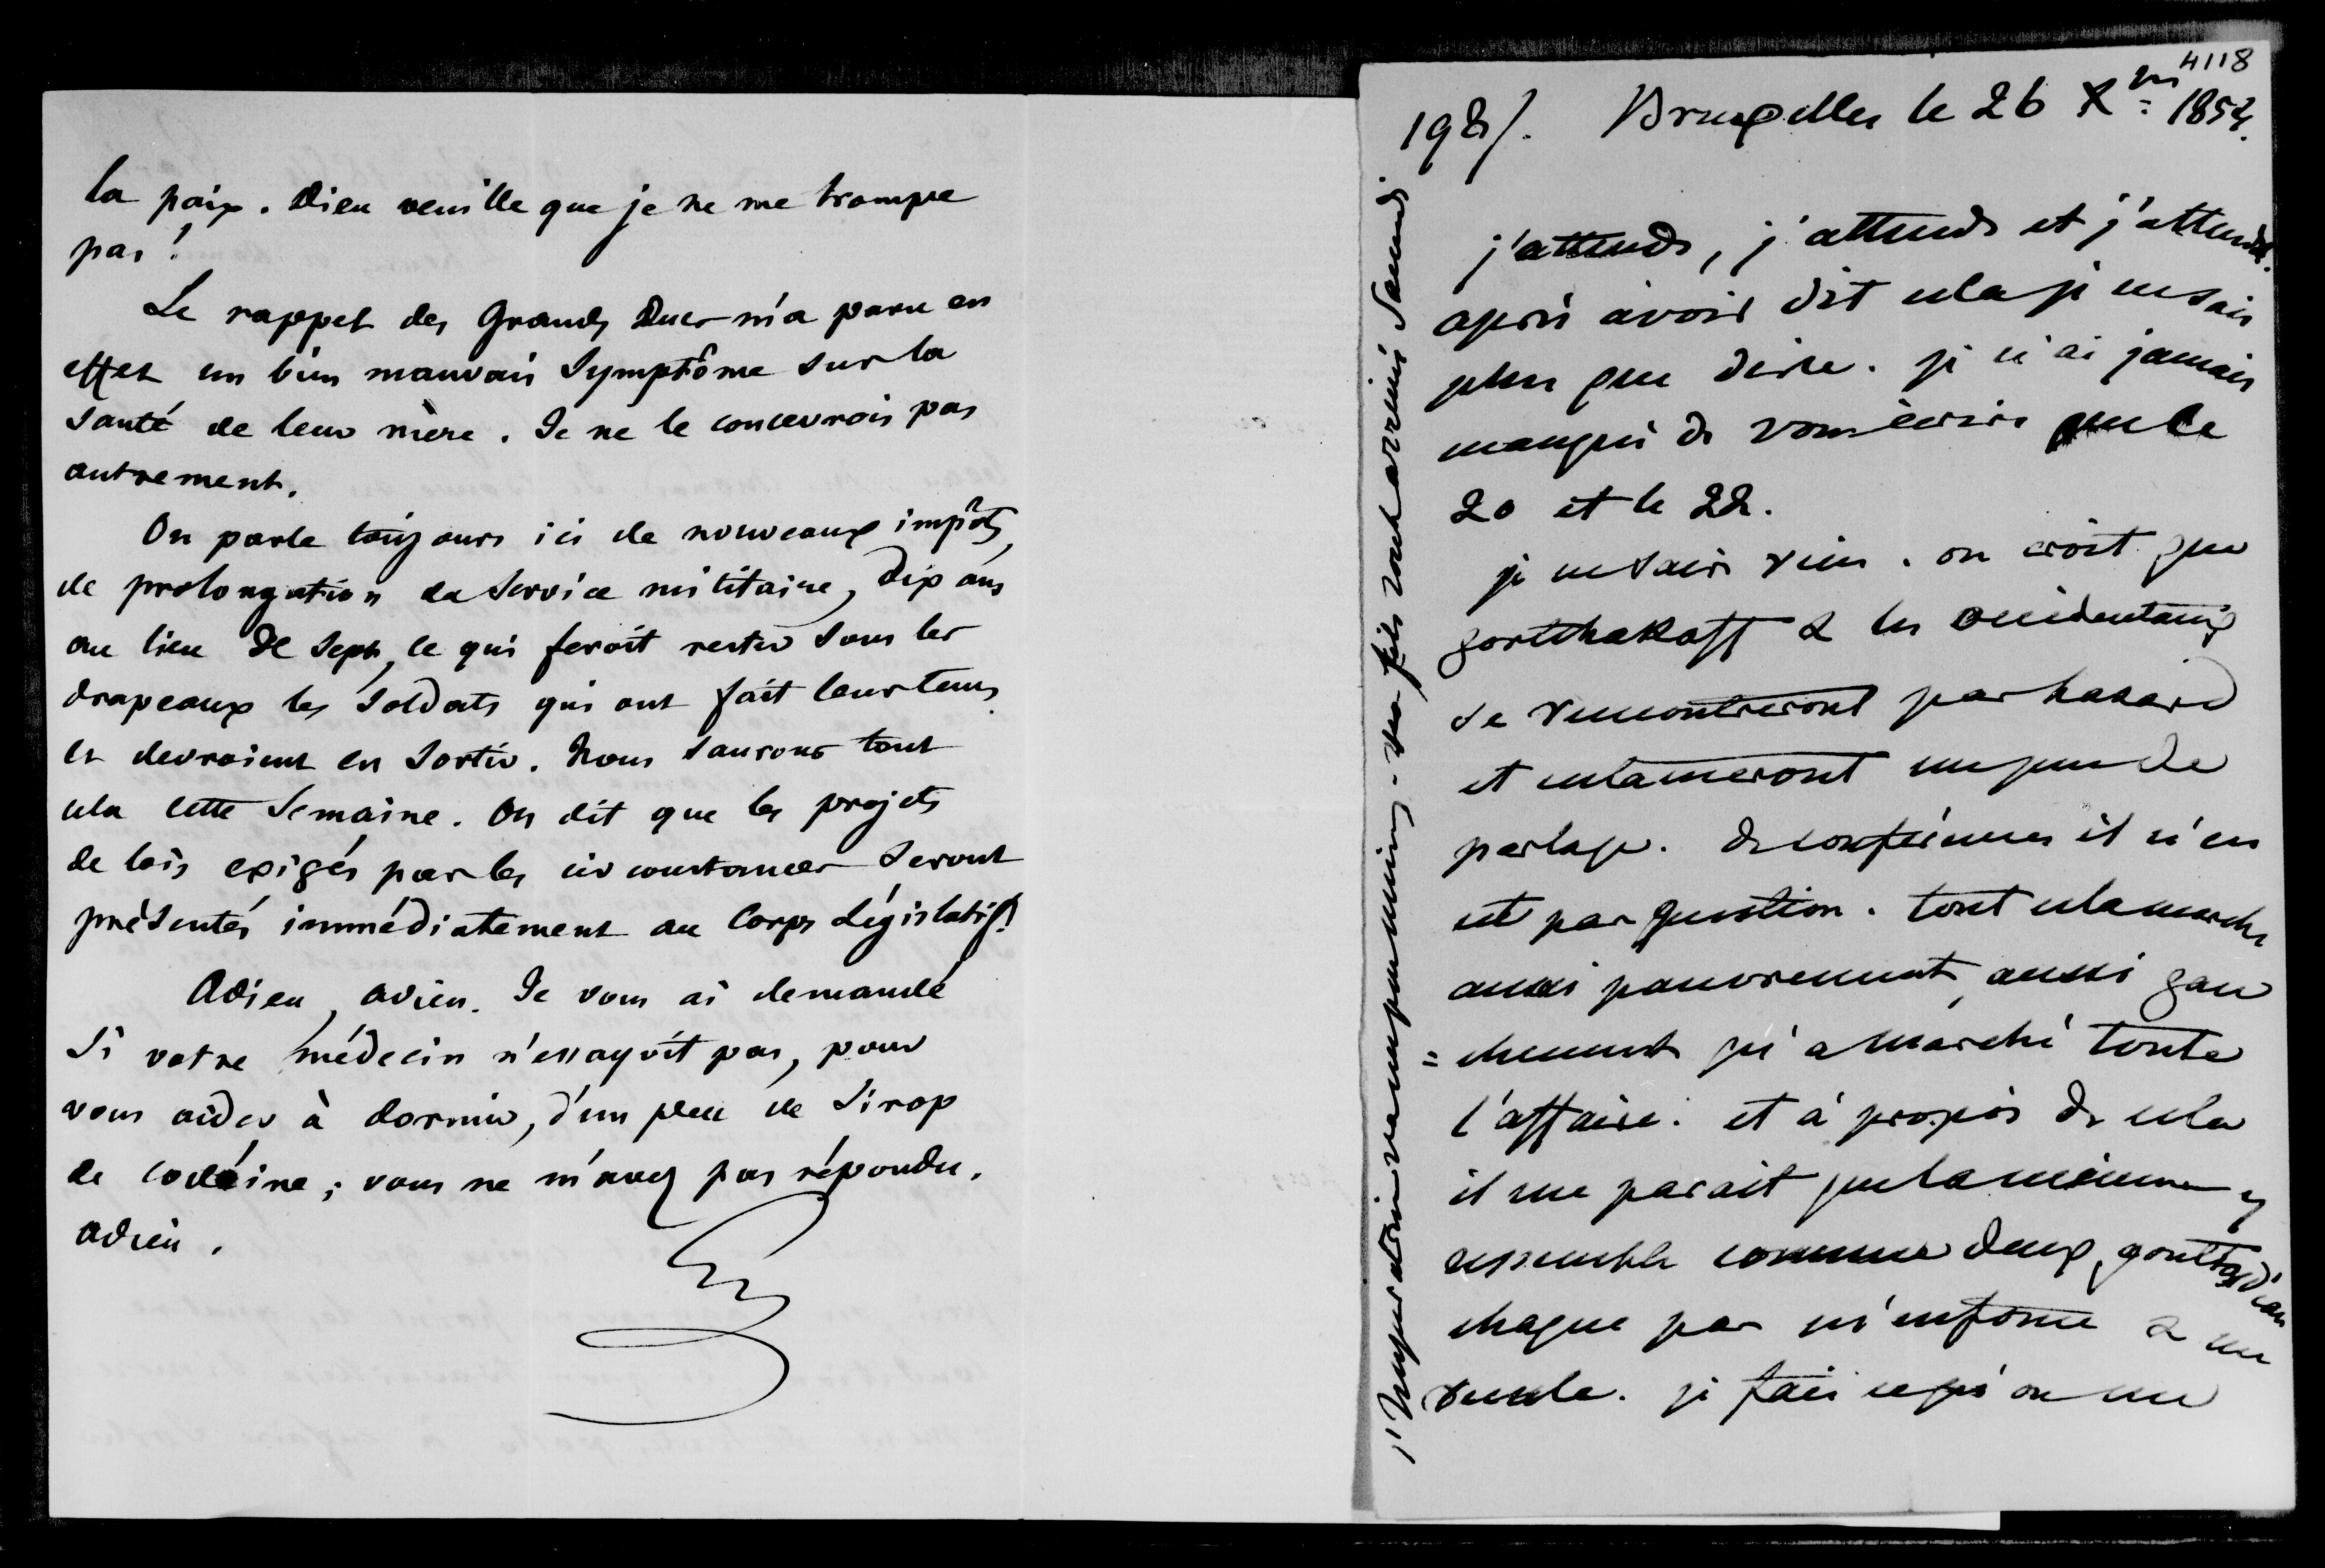 la paix. Dieu veuille que je ne me trompe
pas!
Le rappel des Grands Ducs m'a paru en
effet un bien mauvais Symptôme sur la
Santé de leur mère. Je ne le concevrois pas
autrement.
On parle toujours ici de nouveaux impôts,
de prolongation du Service militaire, dix ans
au lieu de Sept, ce qui feroit rester Sous les
drapeaux les Soldats qui ont fait leur tems
et devroient en Sortir. Nous Saurons tout
cela cette Semaine. On dit que les projets
de lois exigés par les circonstances Seront
présentés immédiatement au Corps Législatif.
Adieu, adieu. Je vous ai demandé
Si votre médecin n'essayoit pas, pour
vous aider à dormir, d'un peu de Sirop
de codéine; vous ne m'avez pas répondu.
adieu.
4118
198/. Bruxelles le 26 Xbre 1854.
j'attends, j'attends et j'attends.
après avoir dit cela je ne sais
plus que dire. je n'ai jamais
manqué de vous écrire que le
20 et le 22.
je ne sais rien. on croit que
gortchakoff & les occidentaux
se rencontreront par hasard
et entameront un peu de
parlage. de conférences il n'en
est pas question. tout cela marche
aussi pauvrement, aussi gau
= chement qu'a marché toute
l'affaire. et à propos de cela
il me parait que la mienne y
ressemble comme deux gouttes d'eau
chaque pas m'enfonce & me
recule. je fais ce qu'on me